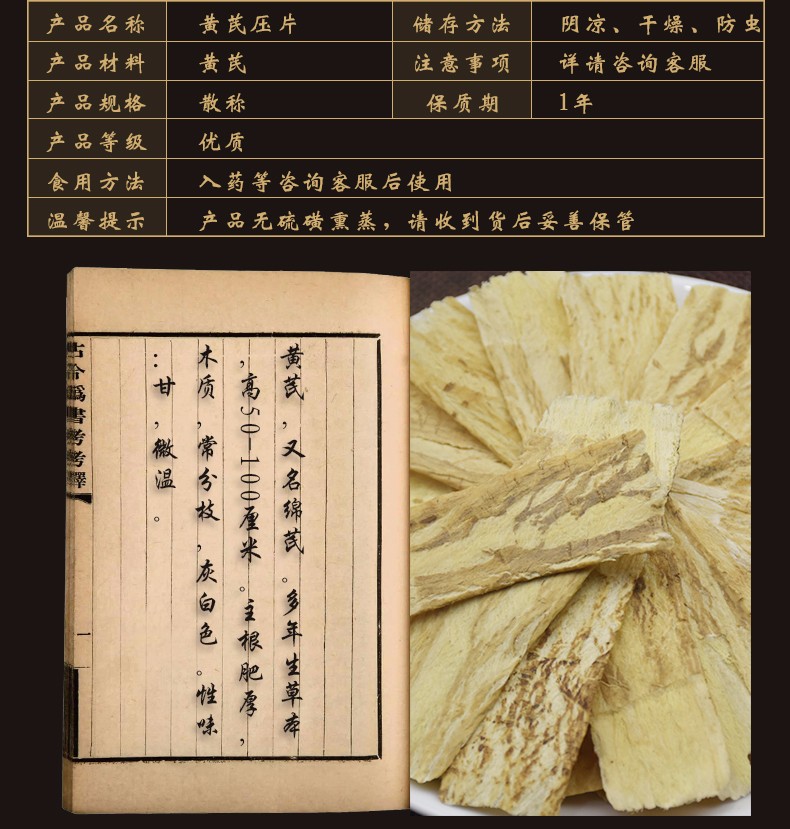 产品名称 黄芪压片 储存方法 阴凉、干燥、防虫
产品材料 黄芪 注意事项 详请咨询客服
产品规格 散称 保质期 1年
产品等级 优质
食用方法 入药等咨询客服后使用
温馨提示 产品无硫磺熏蒸，请收到货后妥善保管
黄芪，又名绵芪。多年生草本
，高50—100厘米。主根肥厚，
木质，常分枝，灰白色。性味
：甘，微温。
古今伪書考考釋
一